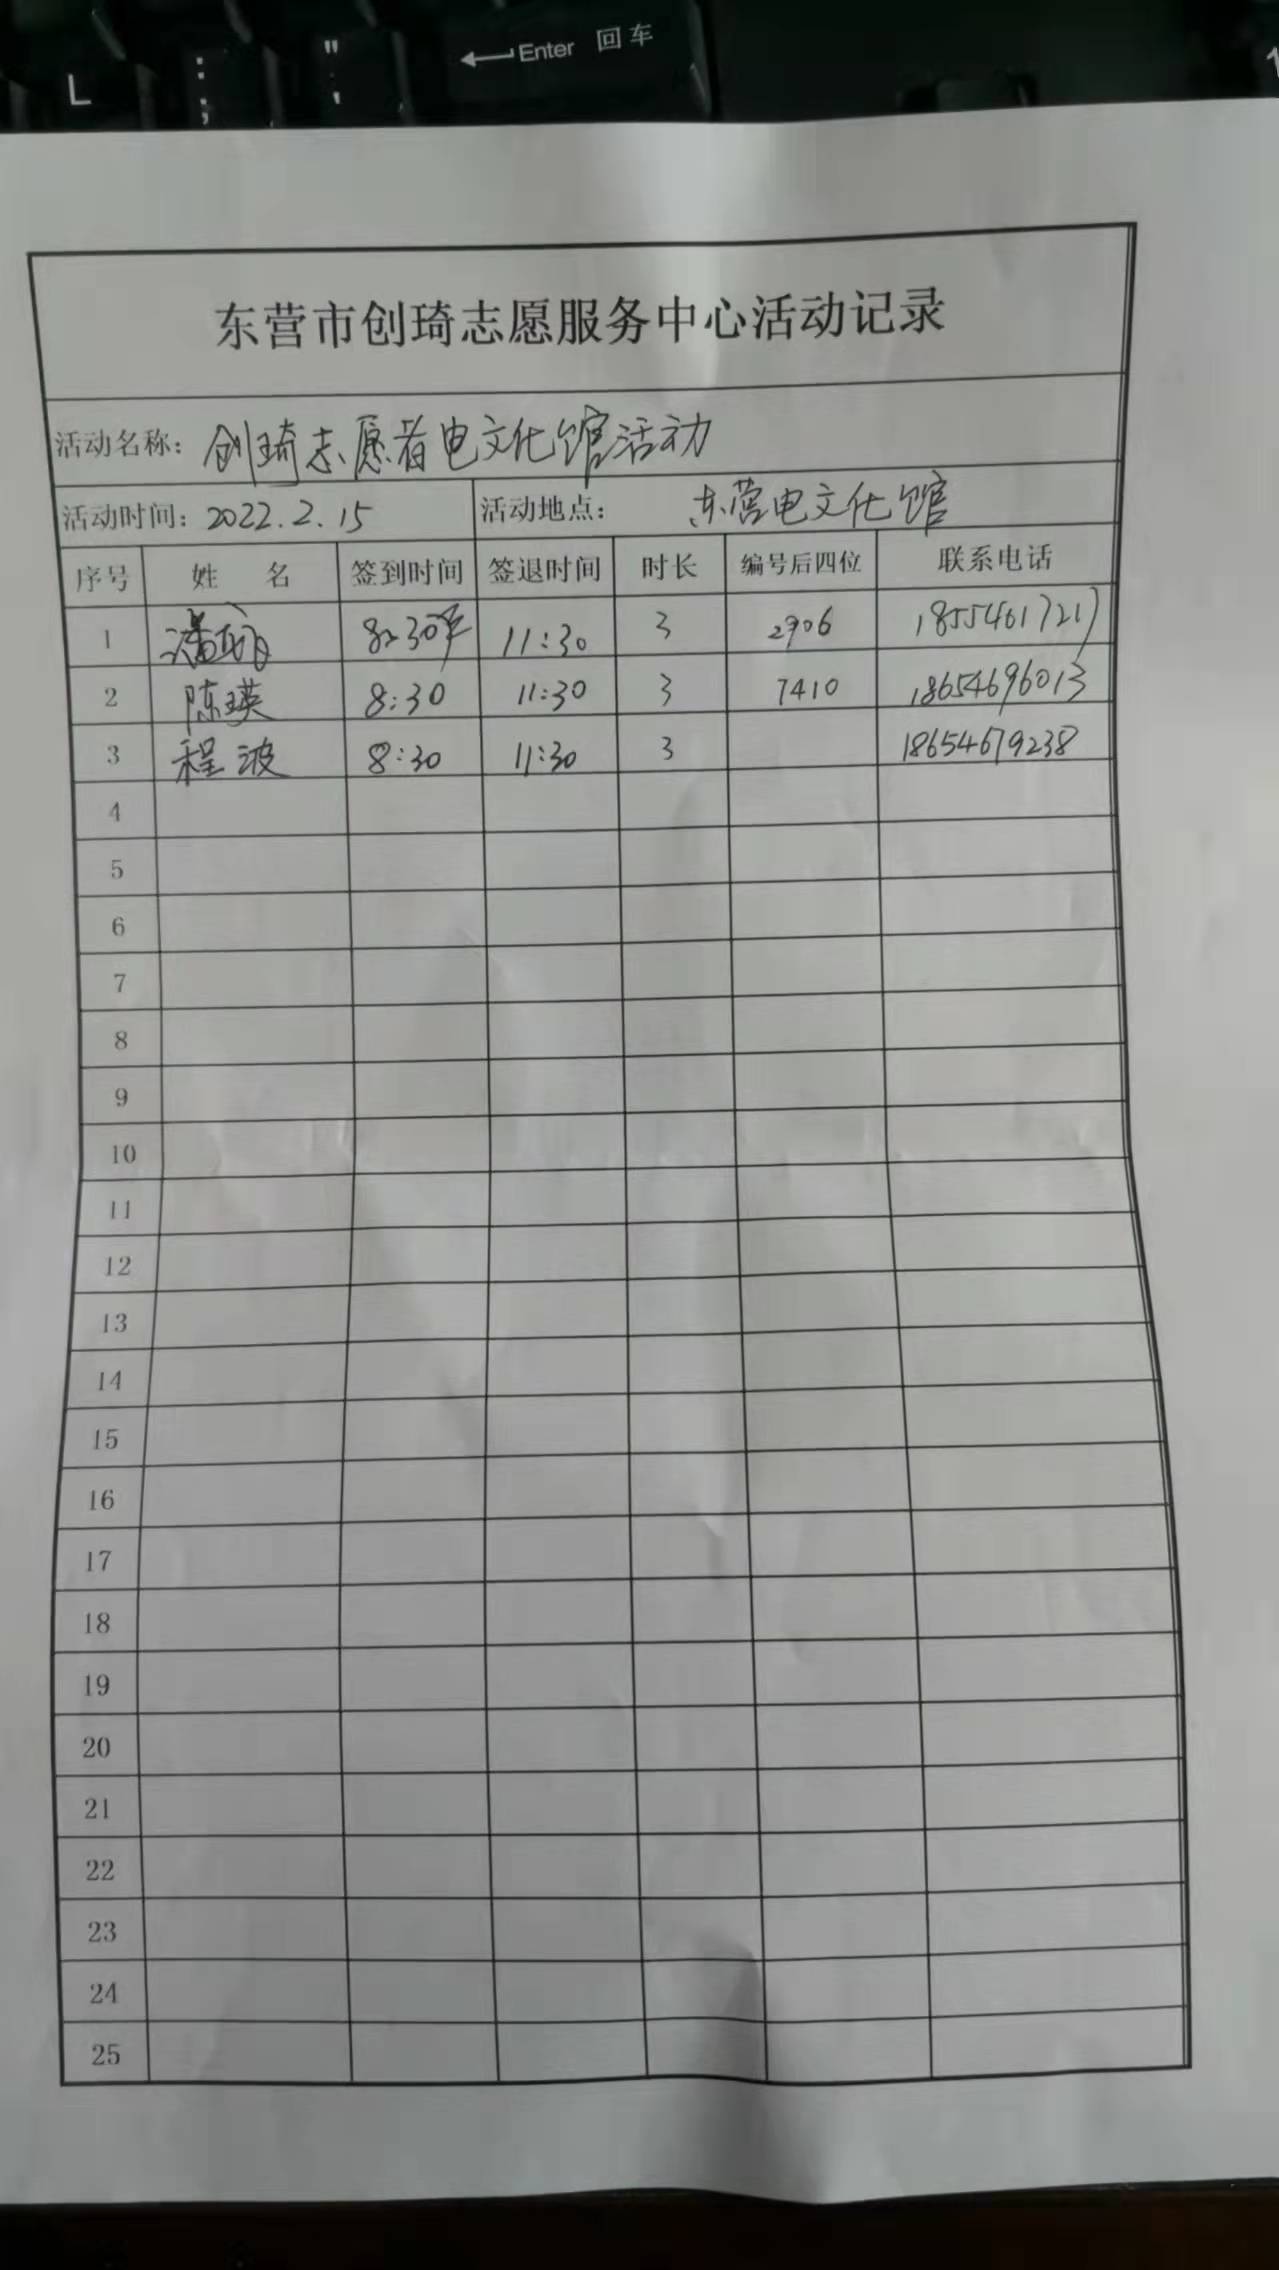 L : ; " ' Enter 回车
东营市创琦志愿服务中心活动记录
活动名称: 创琦志愿者电文化馆活动
活动时间: 2022.2.15 活动地点: 东营电文化馆
序号 姓 名 签到时间 签退时间 时长 编号后四位 联系电话
1 潘 8:30 11:30 3 2906 18554617217
2 陈瑛 8:30 11:30 3 7410 18654696013
3 程波 8:30 11:30 3 18654679238
4
5
6
7
8
9
10
11
12
13
14
15
16
17
18
19
20
21
22
23
24
25